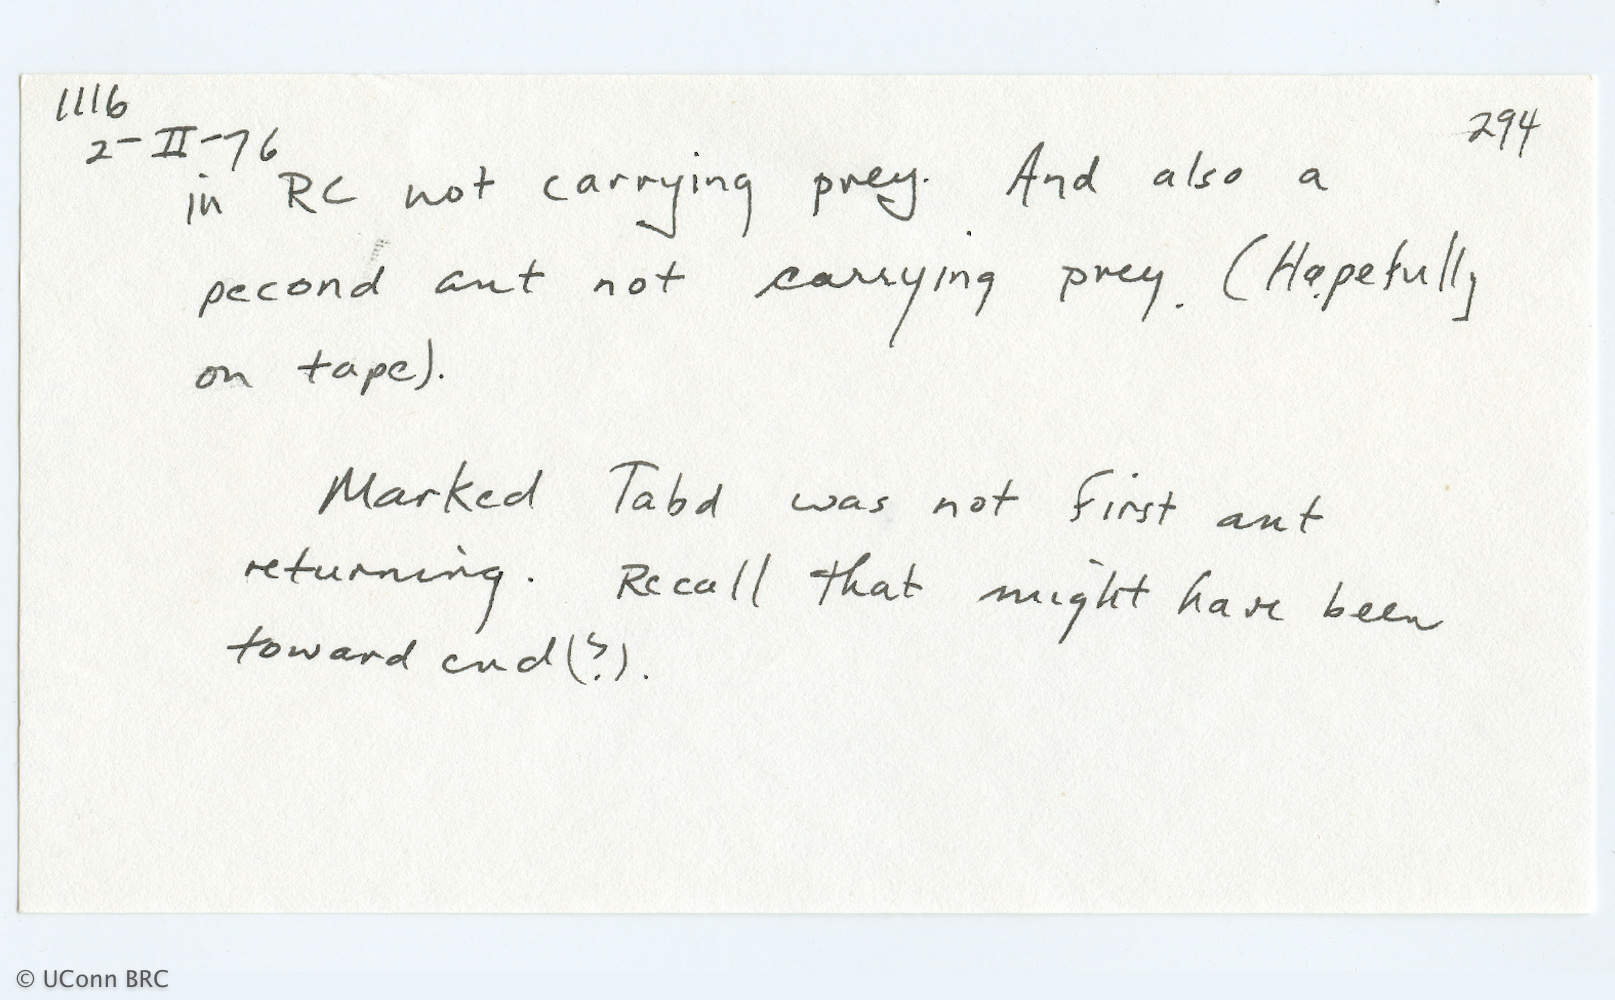 1116
2-II-76
294
in RC not carrying prey. And also a
second ant not carrying prey. (Hopefully
on tape).
Marked Tabd was not first ant
returning. Recall that might have been
toward end(?).
© UConn BRC